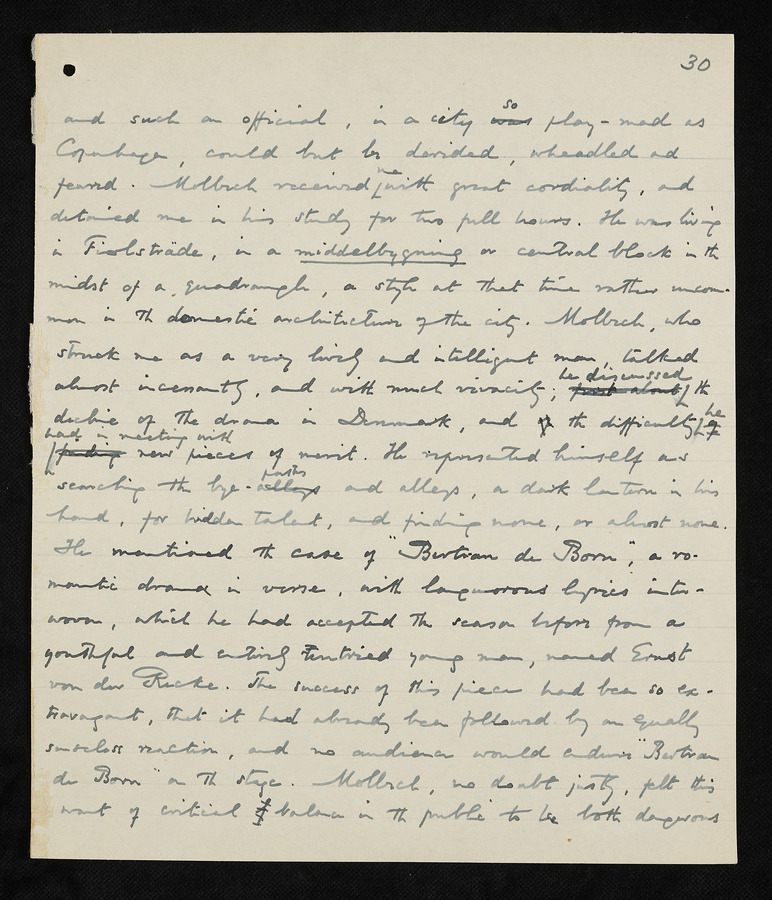 30
and such an official, in a city was so play-mad as
Copenhagen, could but be derided, wheedled and
feared. Molbech received me with great cordiality, and
detained me in his study for two full hours. He was living
in Fiolstræde, in a middelbygning or central block in the
midst of a quadrangle, a style at that time rather uncom-
mon in the domestic architecture of the city. Molbech, who
struck me as a very lively and intelligent man, talked
almost incessantly, and with much vivacity; he discussed the
decline of the drama in Denmark, and the difficulty he
had in meeting with new pieces of merit. He represented himself as
searching the bye-paths and alleys, a dark lantern in his
hand, for hidden talent, and finding none, or almost none.
He mentioned the case of "Bertran de Born", a ro-
mantic drama in verse, with languorous lyrics inter-
woven, which he had accepted the season before from a
youthful and entirely untried young man, named Ernst
von der Recke. The success of this piece had been so ex-
travagant, that it had already been followed by an equally
senseless reaction, and no audience would endure "Bertran
de Born" on the stage. Molbech, no doubt justly, felt this
want of critical balance in the public to be both dangerous